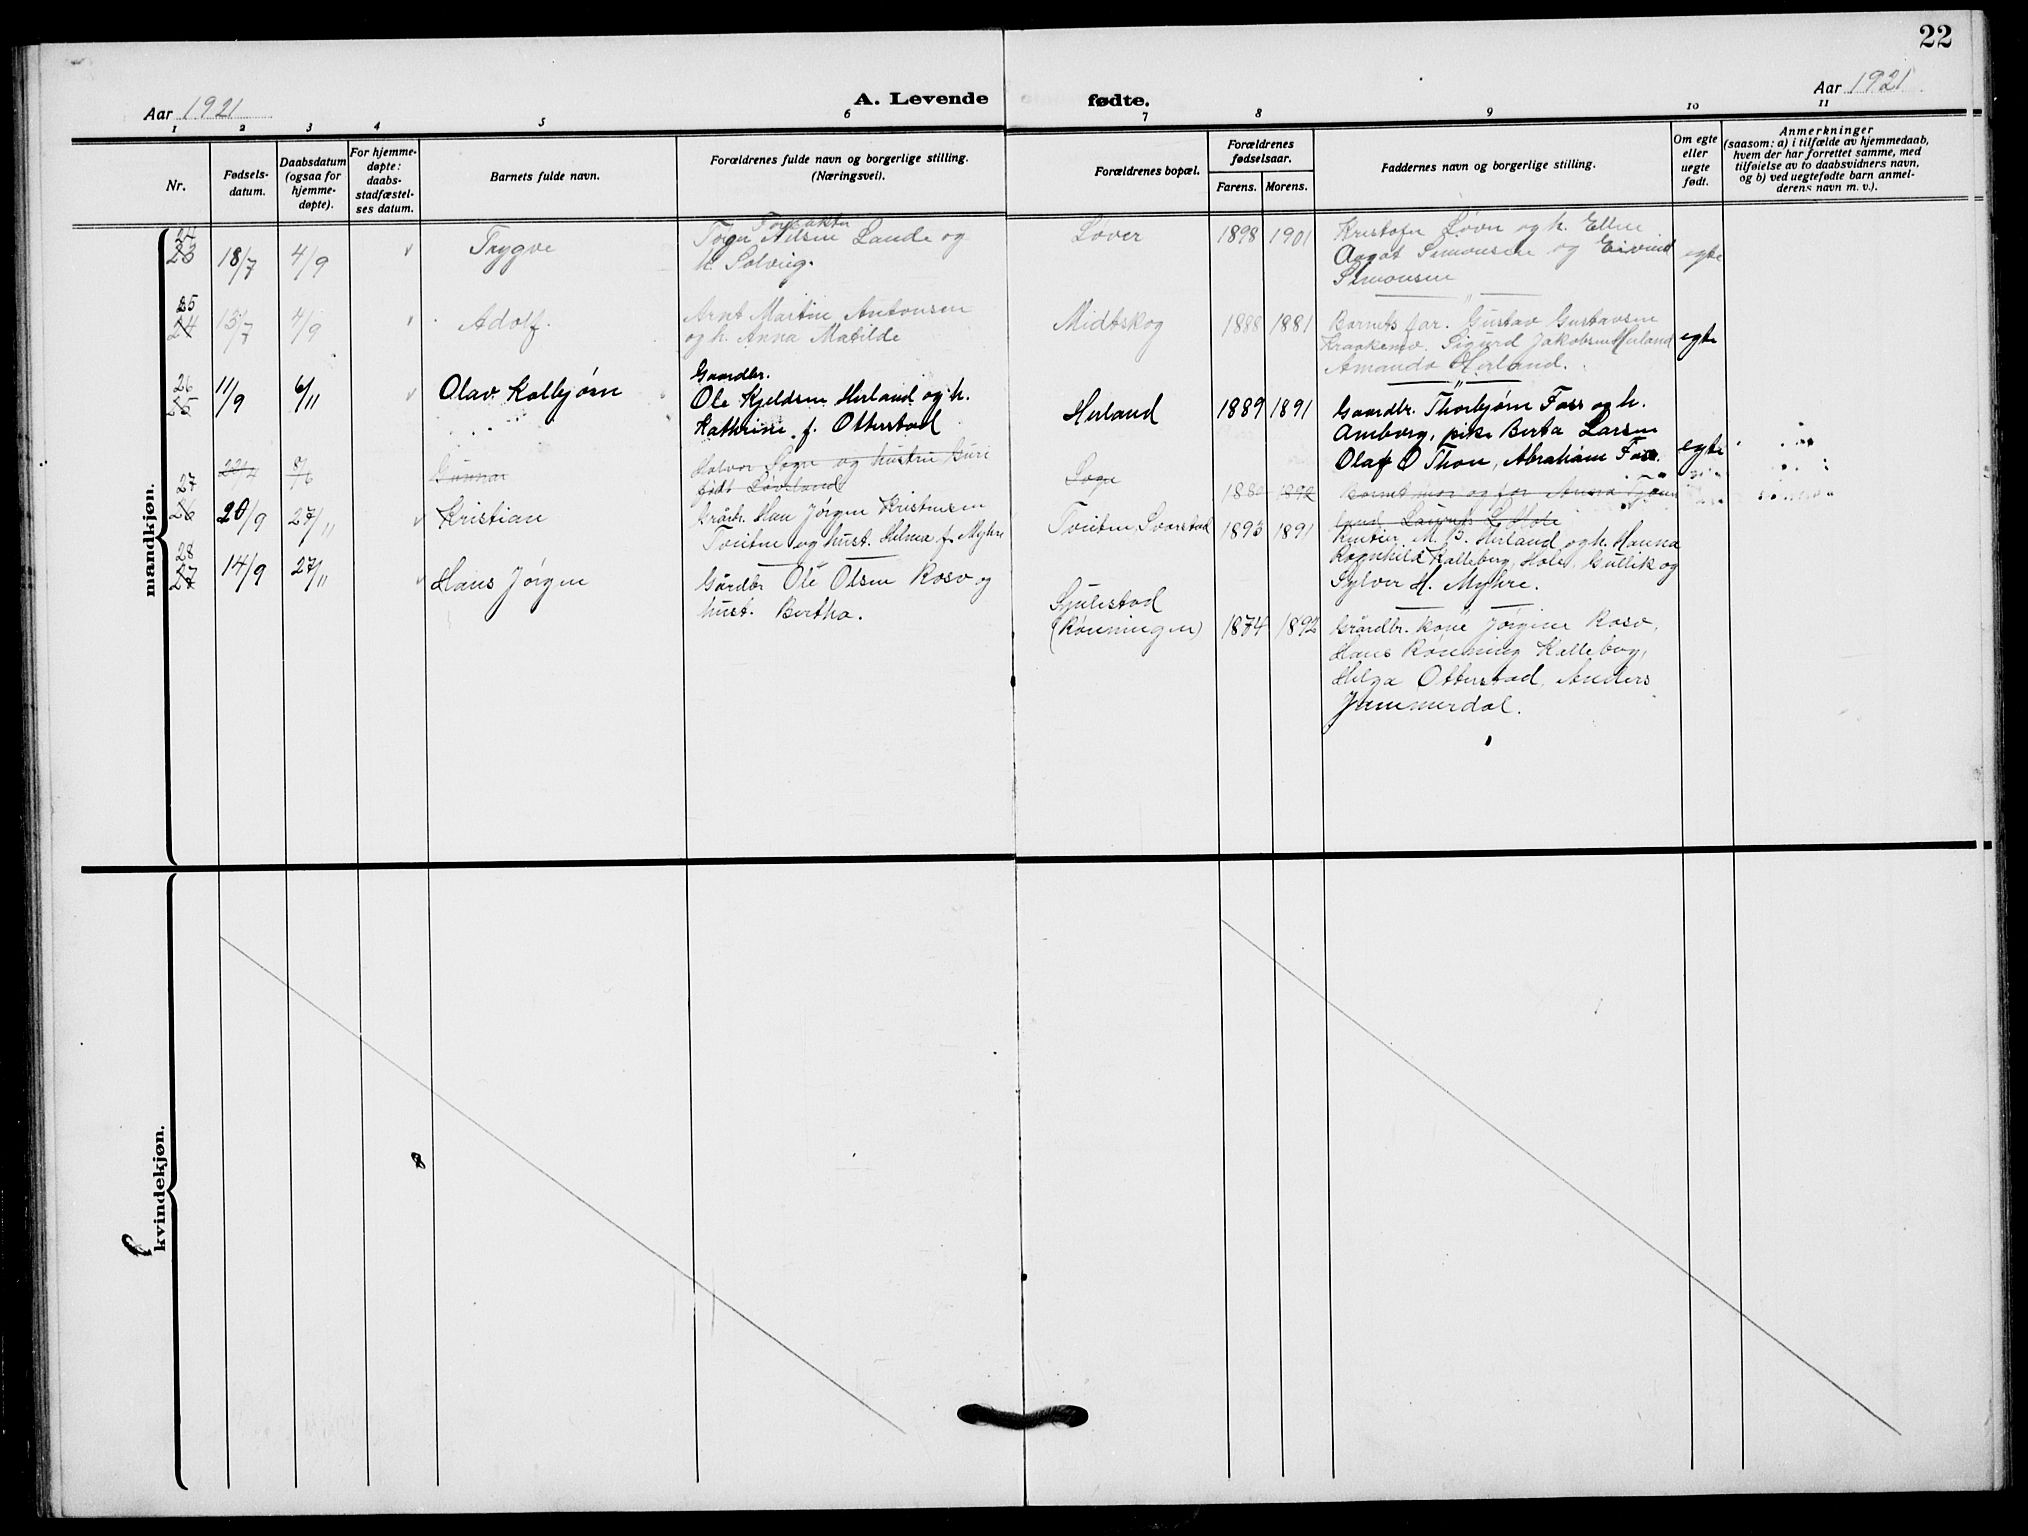 22
Aar 1921
A. Levende fødte.
Aar 1921
1 2 3 4 5 6 7 8 9 10 11
Nr.
Fødsels-
datum.
Daabsdatum
(ogsaa for
hjemme-
døpte).
For hjemme-
døpte:
daabs-
stadfæstel-
ses datum.
Barnets fulde navn.
Forældrenes fulde navn og borgerlige stilling.
(Næringsvei).
Forældrenes bopæl.
Forældrenes
fødselsaar.
Farens. Morens.
Faddernes navn og borgerlige stilling.
Om egte
eller
uegte
født.
Anmerkninger
(saasom: a) i tilfælde av hjemmedaab,
hvem der har forrettet samme, med
tilføielse av to daabsvidners navn,
og b) ved uegtefødte barn anmel-
derens navn m. v.).
mandkjøn.
24
23
18/7
4/9
Trygve
Nilsen Lande og
h. Solveig.
Løver
1898
1901
Kristofer Løver og h. Ellen
Aagot Simonsen og Eivind
Simonsen
egte
25
24
13/7
4/9
Adolf.
Arnt Martin Antonsen
og h. Anna Matilde
Midtskog
1888
1881
Barnets far. Gustav Gustavsen
Kraakemo, Sigurd Jakobsen Herland
Amanda Herland.
egte
26
25
11/9
6/11
Olav Kolbjørn
Gaardbr.
Ole Kjeldsen Herland og h.
Kathrine f. Otterstad
Herland
1889
1891
Gaardbr. Thorbjørn Foss og h.
Amborg, pike Berta Larsen
Olaf O Thon, Abraham Foss.
egte
Gunnar
Halvor Sogn og hustru Guri
født Løveland
Sogn
1892
Barnets mor og far
27
26
20/9
27/11
Kristian
Grdbr. Hans Jørgen Kristensen
Tveiten og hust. Helma f. Myhre
Tveiten Svarstad
1893
1891
M. B. Herland og h. Hanna
Ragnhild Kalleberg, Hole, Gullik og
Sylver H. Myhre.
28
27
14/9
27/11
Hans Jørgen
Gårdbr Ole Olsen Roso og
hust. Bertha.
Sjulestad
(Rønningen)
1874
1892
Gårdbr. kone Jørgine Roso,
Hans Rønning Kalleberg,
Helga Otterstad, Anders
Jummerdal.
kvindekjøn.